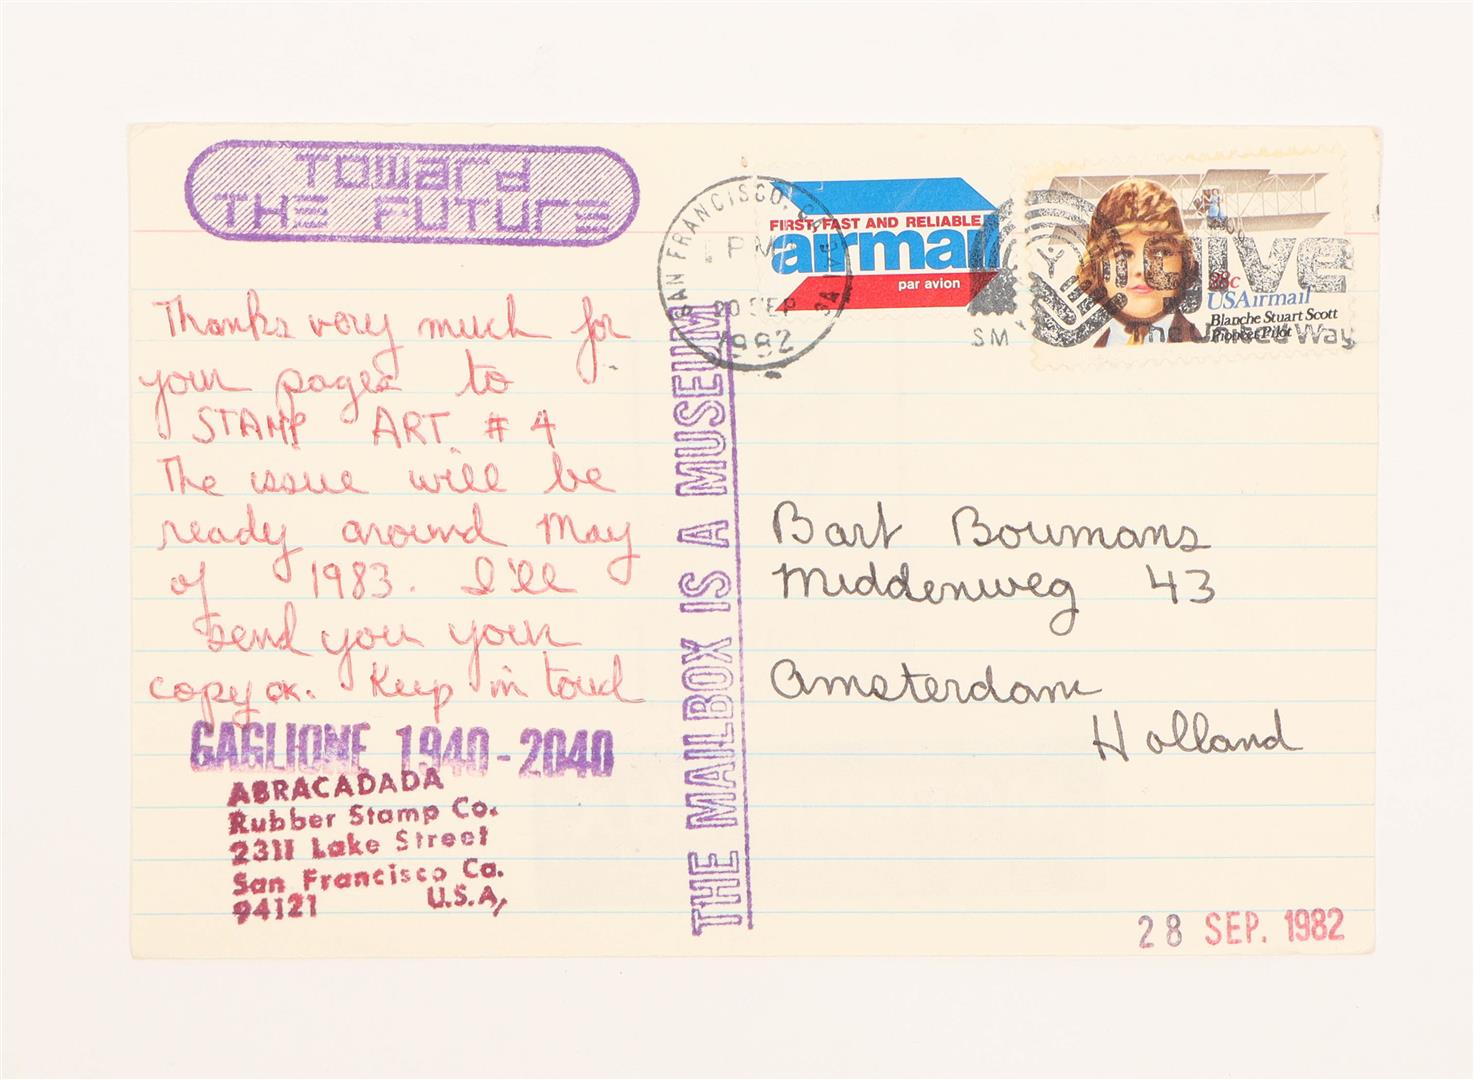 Toward
THE FUTURE
Thanks very much for
your pages to
STAMP ART # 4
The issue will be
ready around May
of 1983. I'll
send you your
copy ok. Keep in touch
GAGLIONE 1940-2040
ABRACADADA
Rubber Stamp Co.
2311 Lake Street
San Francisco Ca.
94121 U.S.A,
THE MAILBOX IS A MUSEUM
SAN FRANCISCO, CA
PM
20 SEP
1982
FIRST, FAST AND RELIABLE
airmail
par avion
28c
USAirmail
Blanche Stuart Scott
Pioneer Pilot
give
The United Way
SM
Bart Boumans
Middenweg 43
Amsterdam
Holland
28 SEP. 1982